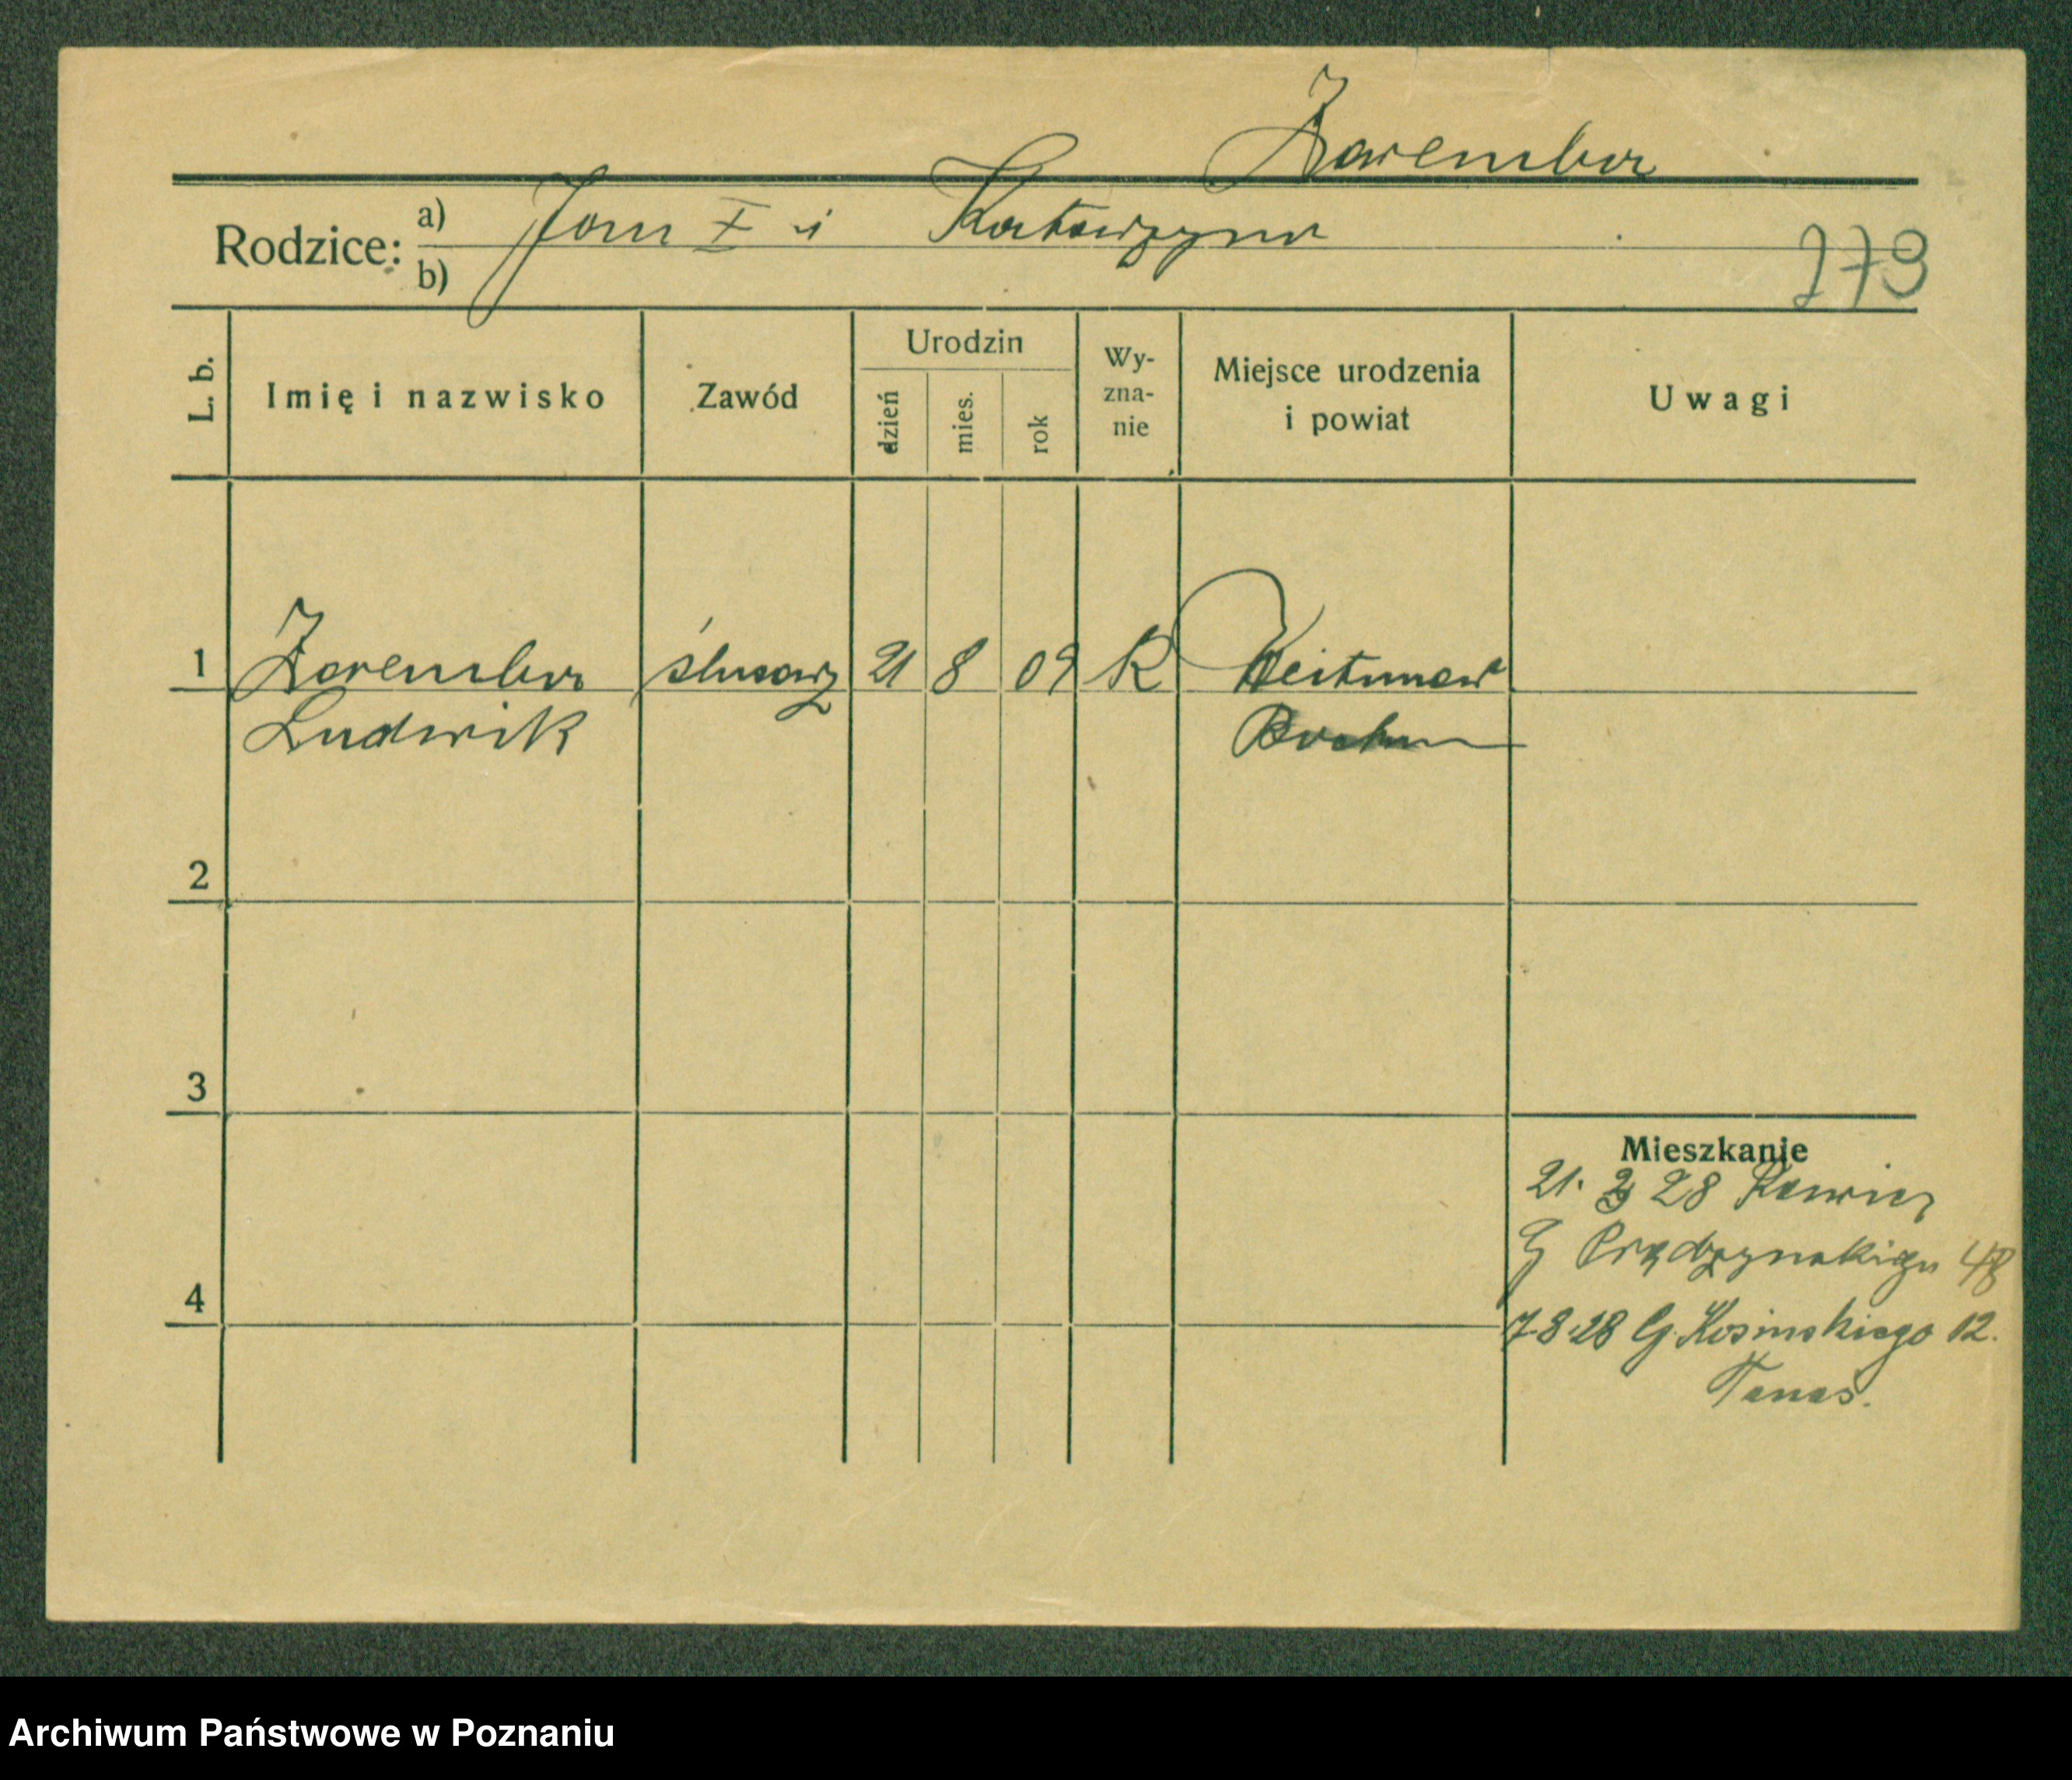 Zaremba
Rodzice: a) Jan † i Katarzyna
b)
273
L. b.
Imię i nazwisko
Zawód
Urodzin
dzień
mies.
rok
Wy-
zna-
nie
Miejsce urodzenia
i powiat
Uwagi
1 Zaremba ślusarz 21 8 09 K
Ludwik Bochum
2
3
Mieszkanie
21. 28 Rawicz
Prądzyńskiego 48
4
7.8.28 G. Kosinskiego 12.
Tanas.
Archiwum Państwowe w Poznaniu